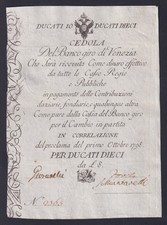 DUCATI 10 DUCATI DIECI
CEDOLA
Del Banco giro di Venezia
Che sarà ricevuta Come danaro effettivo
da tutte le Casse Regie
e Pubbliche
in pagamento delle Contribuzioni
dazj, fondiarie e qualunque altra
Come pure dalla Cassa del Banco giro
per il Cambio in partita
IN CORRELAZIONE
del proclama del primo Ottobre 1798
PER DUCATI DIECI
da L 8.